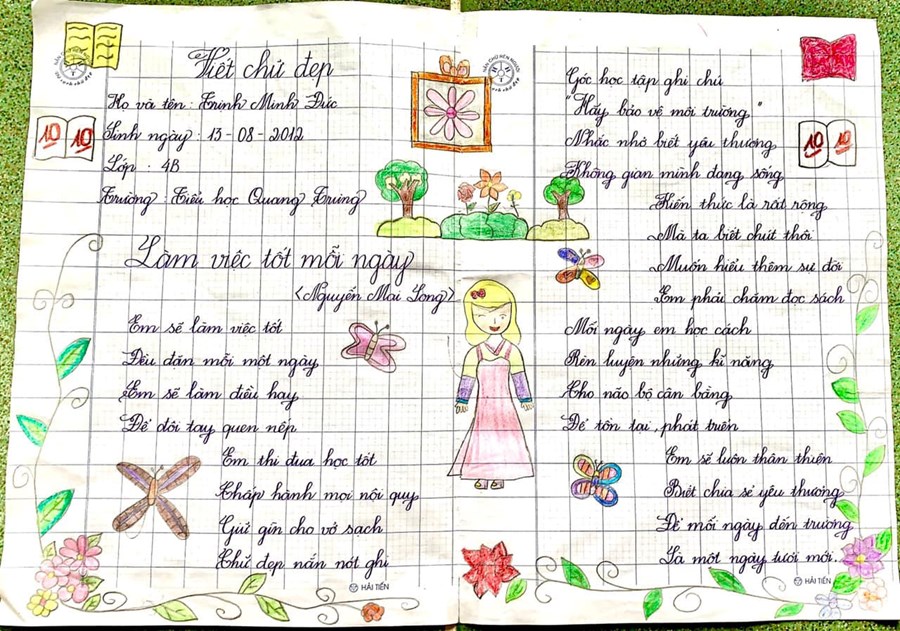 Viết chữ đẹp
Họ và tên : Trịnh Minh Đức
Sinh ngày : 13 - 08 - 2012
Lớp : 4B
Trường : Tiểu học Quang Trung
10 10
Làm việc tốt mỗi ngày
<Nguyễn Mai Long>
Em sẽ làm việc tốt
Đều dặn mỗi một ngày
Em sẽ làm điều hay
Để đôi tay quen nếp
Em thi đua học tốt
Chấp hành mọi nội quy
Giữ gìn cho vở sạch
Chữ đẹp nắn nót ghi
HẢI TIẾN
Góc học tập ghi chú
"Hãy bảo vệ môi trường"
Nhắc nhở biết yêu thương
Không gian mình đang sống
10 10
Kiến thức là rất rộng
Mà ta biết chút thôi
Muốn hiểu thêm sự đời
Em phải chăm đọc sách
Mỗi ngày em học cách
Rèn luyện những kĩ năng
Cho não bộ cân bằng
Để tồn tại, phát triển
Em sẽ luôn thân thiện
Biết chia sẻ yêu thương
Để mỗi ngày đến trường
Là một ngày tươi mới.
HẢI TIẾN